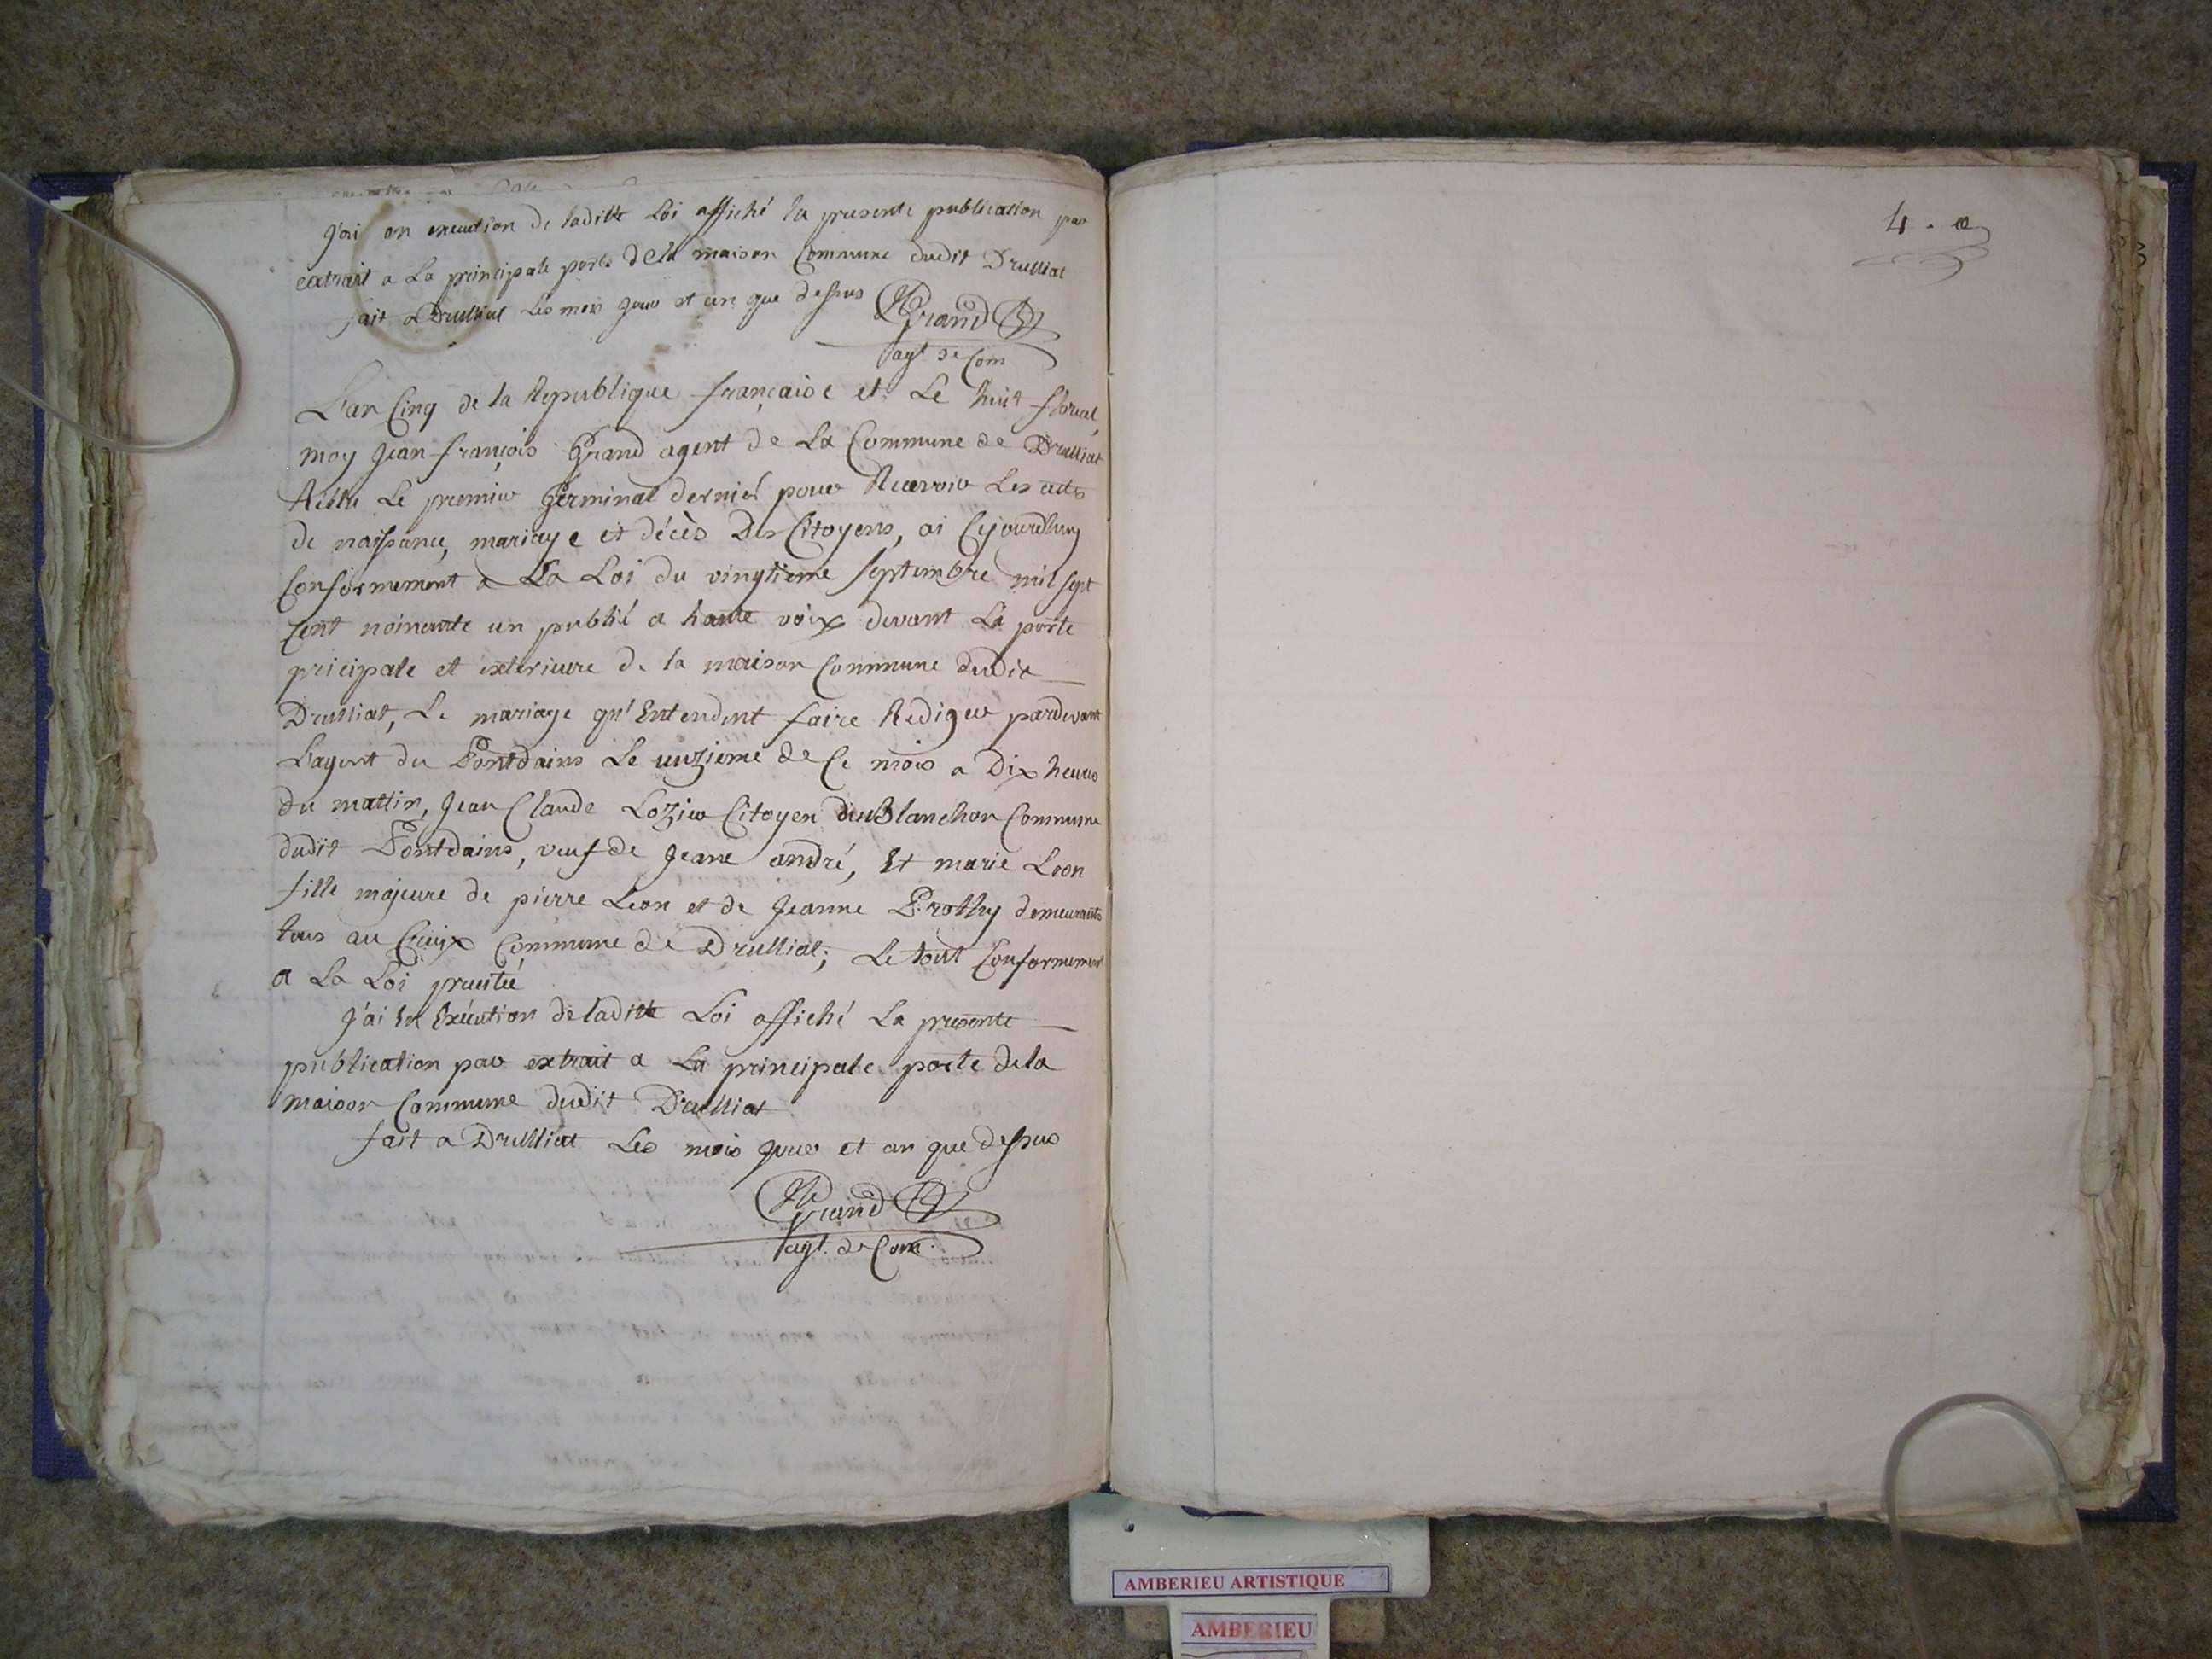 j'ai en execution de laditte Loi affiché la presente publication par
extrait a La principale porte dela maison Commune dudit Drulliat
fait a Drulliat Les mois jour et an que dessus
Grand
agt. de Com
4.
L'an Cinq de la Republique francaise et Le huit floreal,
moy Jean-françois Grand agent de La Commune de Drulliat
Reélu Le premier Germinal dernier pour Recevoir Les actes
de naissance, mariage et décès Des Citoyens, ai Cejourdhuy
Conformement a La Loi du vingtieme septembre mil sept
Cent nonante un publié a haute voix devant La porte
pricipale et exterieure de la maison Commune dudit
Drulliat, Le mariage qu'Entendent faire Rediger pardevant
L'agent du Pontdains Le unzieme de Ce mois a Dix heures
du mattin, Jean Claude Lozier Citoyen du Blanchon Commune
dudit Pontdains, veuf de Jeane andré, Et marie Leon
fille majeure de pierre Leon et de Jeanne Prothy demeurants
tous au Commune de Drulliat; Le tout Conformement
a La Loi precitée
J'ai En Exécution de laditte Loi affiché La presente
publication par extrait a La principale porte dela
maison Commune dudit Drulliat
fait a Drulliat Les mois jour et an que dessus
Grand
agt. de Com.
AMBERIEU ARTISTIQUE
AMBERIEU